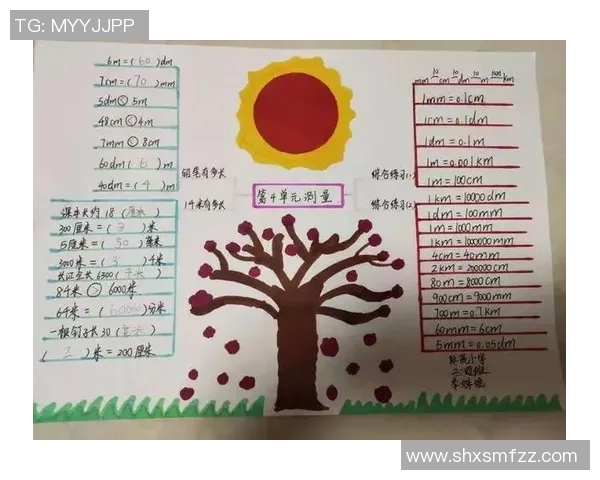 TG: MYYJJPP
6m=(60)dm
7cm=(70)mm
5dm<5m
48cm<4m
7mm<8cm
60dm(6)m
40dm=(4)m
铅笔有多长
1千米有多长
课本长约18(厘米)
300厘米=(3)米
5厘米=(50)毫米
3000米=(3)千米
长江全长6300(千米)
8千米>6000米
6千米=(60000)分米
一根钉子长30(毫米)
(2)米=200厘米
第4单元测量
综合练习(1)
综合练习(2)
10 10 10 1000
mm cm dm m km
1mm=0.1cm
1cm=0.1dm
1dm=0.1m
1m=0.001km
1m=100cm
1km=10000dm
1dm=100mm
1m=1000mm
1km=1000000mm
4cm=40mm
2km=200000cm
80m=8000cm
900cm=9000mm
700m=0.7km
60mm=6cm
5mm=0.05dm
小学
www.shxsmfzz.com